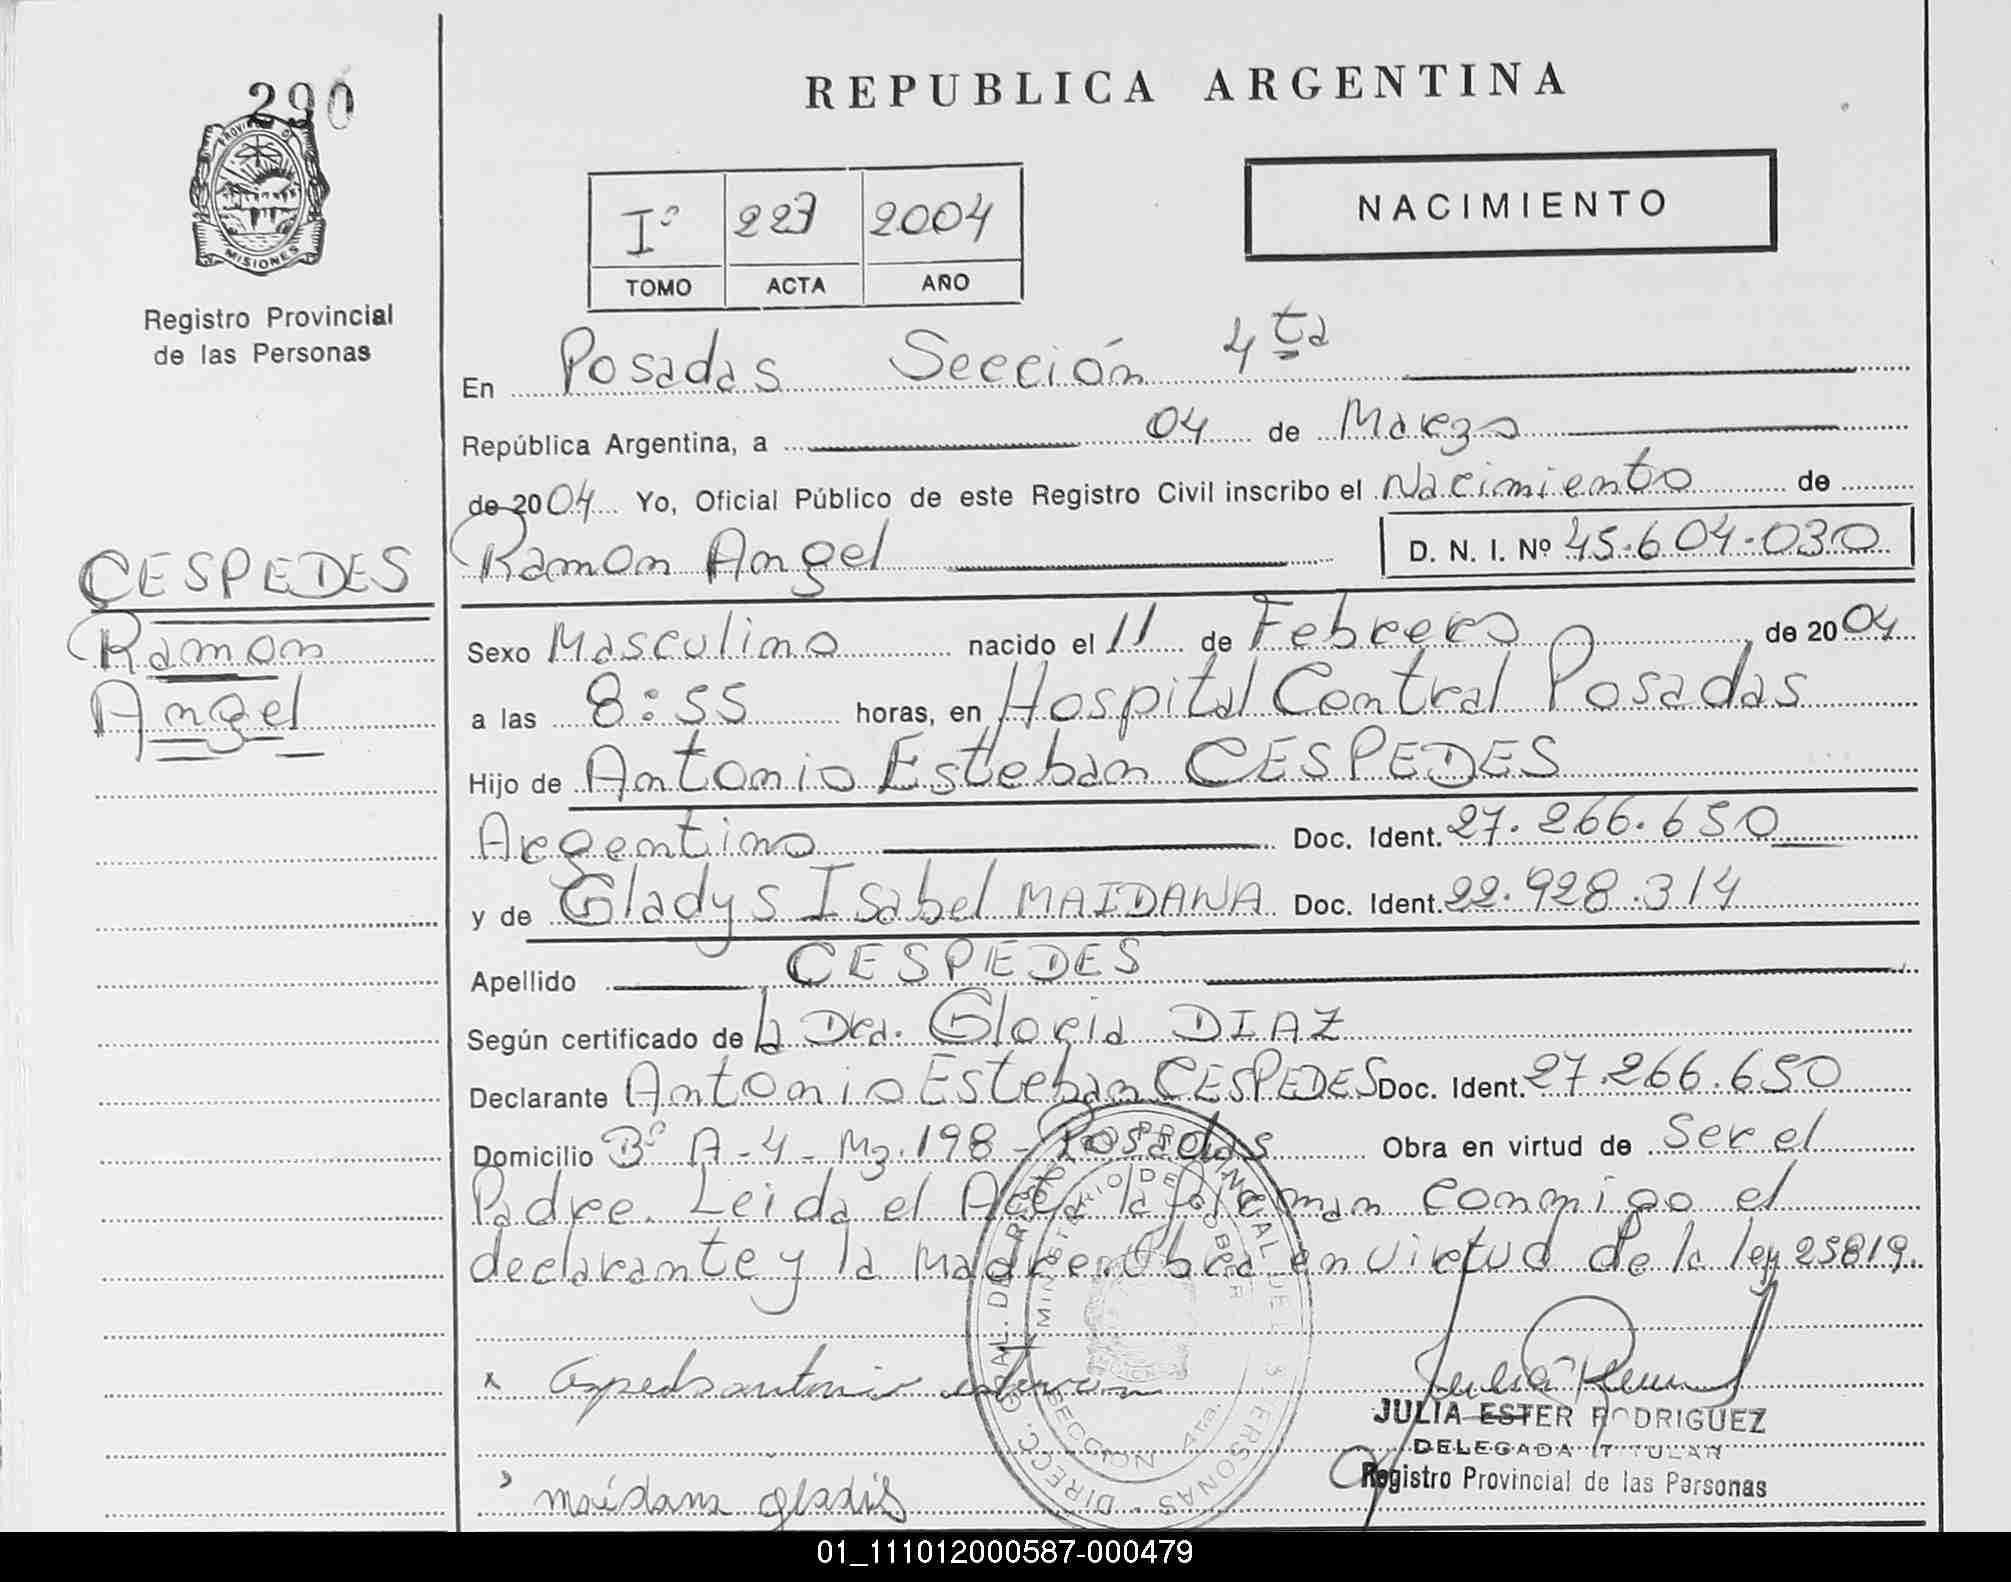 290
PROVINCIA DE
MISIONES
Registro Provincial
de las Personas
CESPEDES
Ramon
Angel
REPUBLICA ARGENTINA
Iº 227 2004
TOMO ACTA AÑO
NACIMIENTO
En Posadas Sección 4ta
República Argentina, a 04 de Marzo
de 2004 Yo, Oficial Público de este Registro Civil inscribo el Nacimiento de
Ramon Angel D. N. I. Nº 45.604.030
Sexo Masculino nacido el 11 de Febrero de 2004
a las 8:55 horas, en Hospital Central Posadas
Hijo de Antonio Esteban CESPEDES
Argentino Doc. Ident. 27.266.650
y de Gladys Isabel MAIDANA Doc. Ident. 22.928.314
Apellido CESPEDES
Según certificado de la Dra. Gloria DIAZ
Declarante Antonio Esteban CESPEDES Doc. Ident. 27.266.650
Domicilio Bº A-4- Mz.198- Posadas Obra en virtud de Ser el
Padre. Leida el Acta la firman conmigo el
declarante y la madre. Obra en virtud de la ley 25819.
x Cespedes antonio esteван
maidana gladis
JULIA ESTER RODRIGUEZ
DELEGADA TITULAR
Registro Provincial de las Personas
01_111012000587-000479